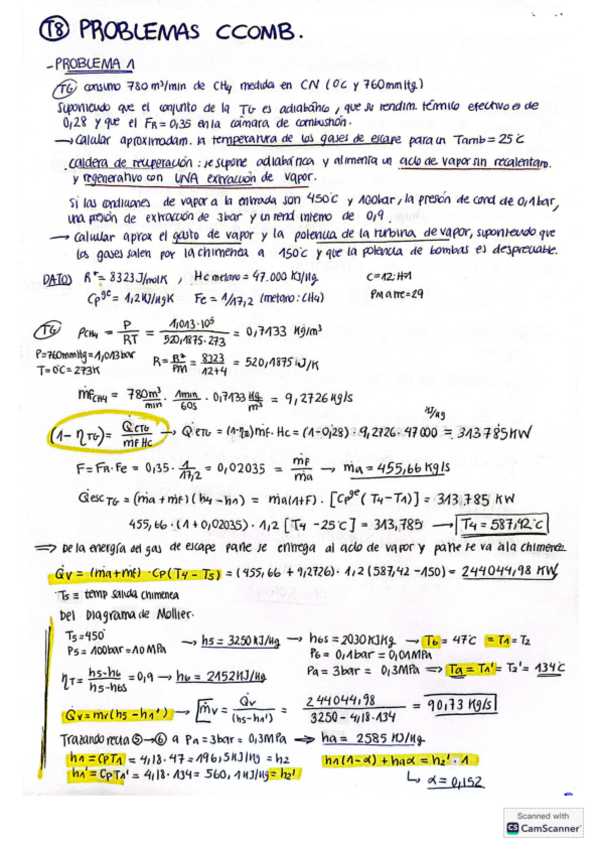 T8 PROBLEMAS CCOMB.
- PROBLEMA 1
TG consumo 780 m³/min de CH4 medida en CN (0ºC y 760mmHg)
Suponiendo que el conjunto de la TG es adiabático, que su rendim. térmico efectivo es de
0,28 y que el FR = 0,35 en la cámara de combustión.
→ Calcular aproximadam. la temperatura de los gases de escape para un Tamb = 25ºC
Caldera de recuperación: se supone adiabática y alimenta un ciclo de vapor sin recalentam.
y regenerativo con UNA extracción de vapor.
Si las condiciones de vapor a la entrada son 450ºC y 100bar, la presión de cond de 0,1bar,
una presión de extracción de 3bar y un rend interno de 0,9.
→ Calcular aprox el gasto de vapor y la potencia de la turbina de vapor, suponiendo que
los gases salen por la chimenea a 150ºC y que la potencia de bombas es despreciable.
DATOS R* = 8323 J/molK , Hc metano = 47.000 KJ/Kg C=12·H=1
Cp^ge = 1,2 KJ/KgK Fe = 1/17,2 (metano: CH4) PM aire = 29
TG ρCH4 = P/RT = 1,013·10⁵/520,1875·273 = 0,7133 Kg/m³
P=760mmHg=1,013bar
T=0ºC=273K R = R*/PM = 8323/12+4 = 520,1875 KJ/K
ṁfCH4 = 780 m³/min · 1min/60s · 0,7133 Kg/m³ = 9,2726 Kg/s
KJ/Kg
(1-ηTG) = Q̇eTG/ṁf Hc → Q̇eTG = (1-ηTG) ṁf · Hc = (1-0,28) · 9,2726 · 47000 = 313785 KW
F = FR·Fe = 0,35 · 1/17,2 = 0,02035 = ṁf/ṁa → ṁa = 455,66 Kg/s
Q̇esc TG = (ṁa+ṁf)(h4-h1) = ṁa(1+F) · [Cp^ge (T4-T1)] = 313.785 KW
455,66 · (1+0,02035) · 1,2 [T4 - 25ºC] = 313,785 → T4 = 587,42ºC
⇒ De la energía del gas de escape parte se entrega al ciclo de vapor y parte se va a la chimenea
Q̇v = (ṁa+ṁf) · Cp (T4-T5) = (455,66 + 9,2726) · 1,2 (587,42 - 150) = 244044,98 KW
T5 ≡ temp salida chimenea
Del Diagrama de Mollier.
T5=450º
P5=100bar=10MPa → h5 = 3250 KJ/Kg → h6s = 2030 KJ/Kg → T6 = 47ºC = T1 = T2
P6 = 0,1bar = 0,01MPa
ηT = h5-h6/h5-h6s = 0,9 → h6 = 2152 KJ/Kg Pa = 3bar = 0,3MPa ⇒ Ta = T1' = T2' = 134ºC
Q̇v = ṁv (h5-h1') → ṁv = Q̇v/(h5-h1') = 244044,98/3250-4,18·134 = 90,73 Kg/s
Trazando recta ⑤→⑥ a Pa = 3bar = 0,3MPa ⇒ ha = 2585 KJ/Kg
h1 = CpT1 = 4,18·47 = 196,5 KJ/Kg = h2 h1(1-α) + haα = h2'·1
h1' = CpT1' = 4,18·134 = 560,1 KJ/Kg = h2' ↳ α = 0,152
Scanned with
CS CamScanner